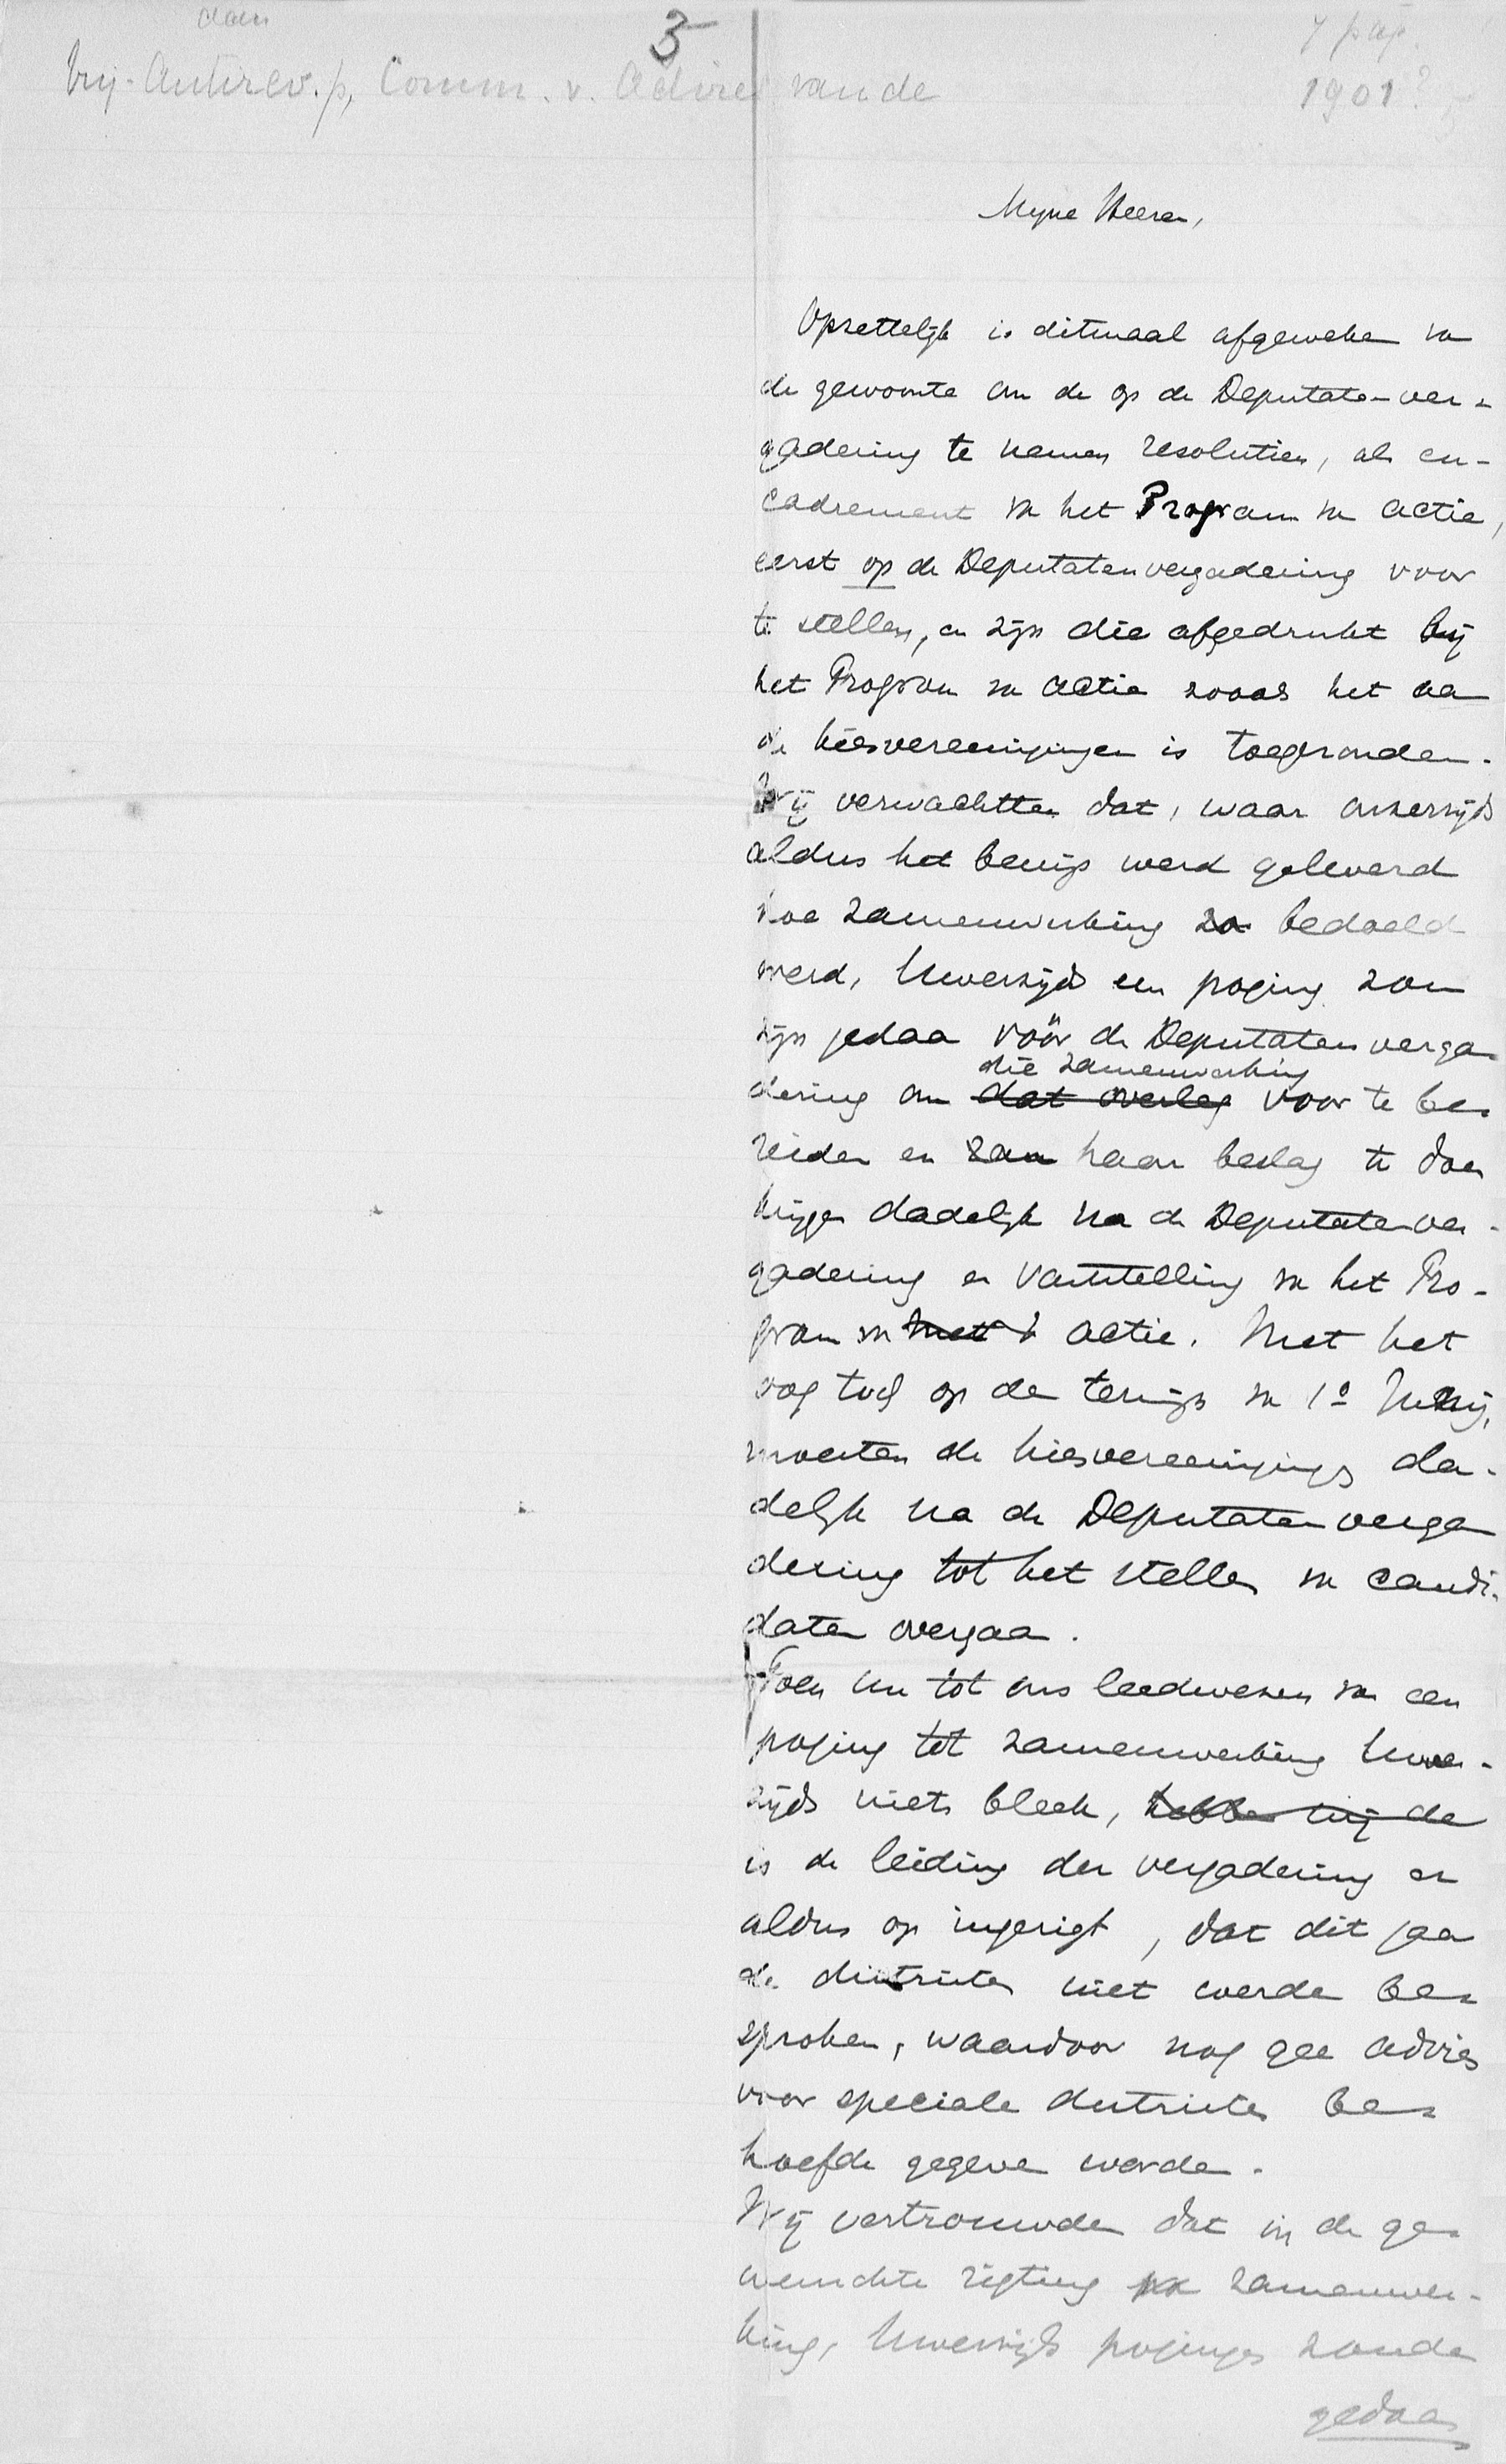 aan
Vrij-Antirev. p, Comm. v. Advies van de
3
7 pag.
1901?
Myne Heeren,
Opzettelijk is ditmaal afgeweken van
de gewoonte om de op de Deputaten-ver-
gadering te nemen resolutien, als en-
cadrement van het Program van actie,
eerst op de Deputatenvergadering voor
te stellen, en zijn die afgedrukt bij
het Program van actie zooals het aan
de kiesvereenigingen is toegezonden.
Wij verwachtten dat, waar onzerzijds
aldus het bewijs werd geleverd
hoe zamenwerking zo bedoeld
werd, Uwerzijds een poging zou
zijn gedaan vóór de Deputatenverga-
die zamenwerking
dering om dat overleg voor te be-
reiden en zou haar beslag te doen
krijgen dadelijk na de Deputatenver-
gadering en vaststelling van het Pro-
gram van actie. Met het
oog toch op den termijn van 1o Junij,
moesten de kiesvereenigingen da-
delijk na de Deputatenverga-
dering tot het stellen van candi-
daten overgaan.
Toen nu tot ons leedwezen van een
poging tot zamenwerking Uwer-
zijds niets bleek, hebben wij de
is de leiding der vergadering er
aldus op ingerigt, dat dit jaar
de districten niet werden be-
sproken, waardoor nog geen advies
voor speciale districten be-
hoefde gegeven worden.
Wij vertrouwden dat in de ge-
wenschte rigting zamenwer-
king, Uwerzijds pogingen zouden
gedaan